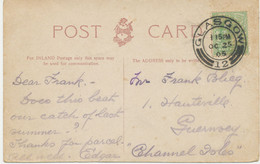 POST CARD
FOR INLAND Postage only this space may be used for communication.
THE ADDRESS only to be written here.
GLASGOW
1 15 PM
OC 25
05
12
Dear Frank -
this beat
our catch of last
summer - ?!
Thanks for parcel
Edgar
Mr Frank
1, Hauteville
Guernsey
Channel Isles